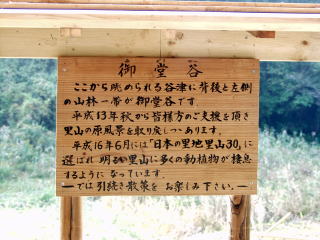 御堂谷
ここから眺められる谷津に背後と左側
の山林一帯が御堂谷です。
平成13年秋から皆様方のご支援を頂き
里山の原風景を取り戻しつつあります。
平成16年6月には「日本の里地里山30」に
選ばれ 明るい里山に多くの動植物が棲息
するように なっています。
ーでは引続き散策を お楽しみ下さい。ー